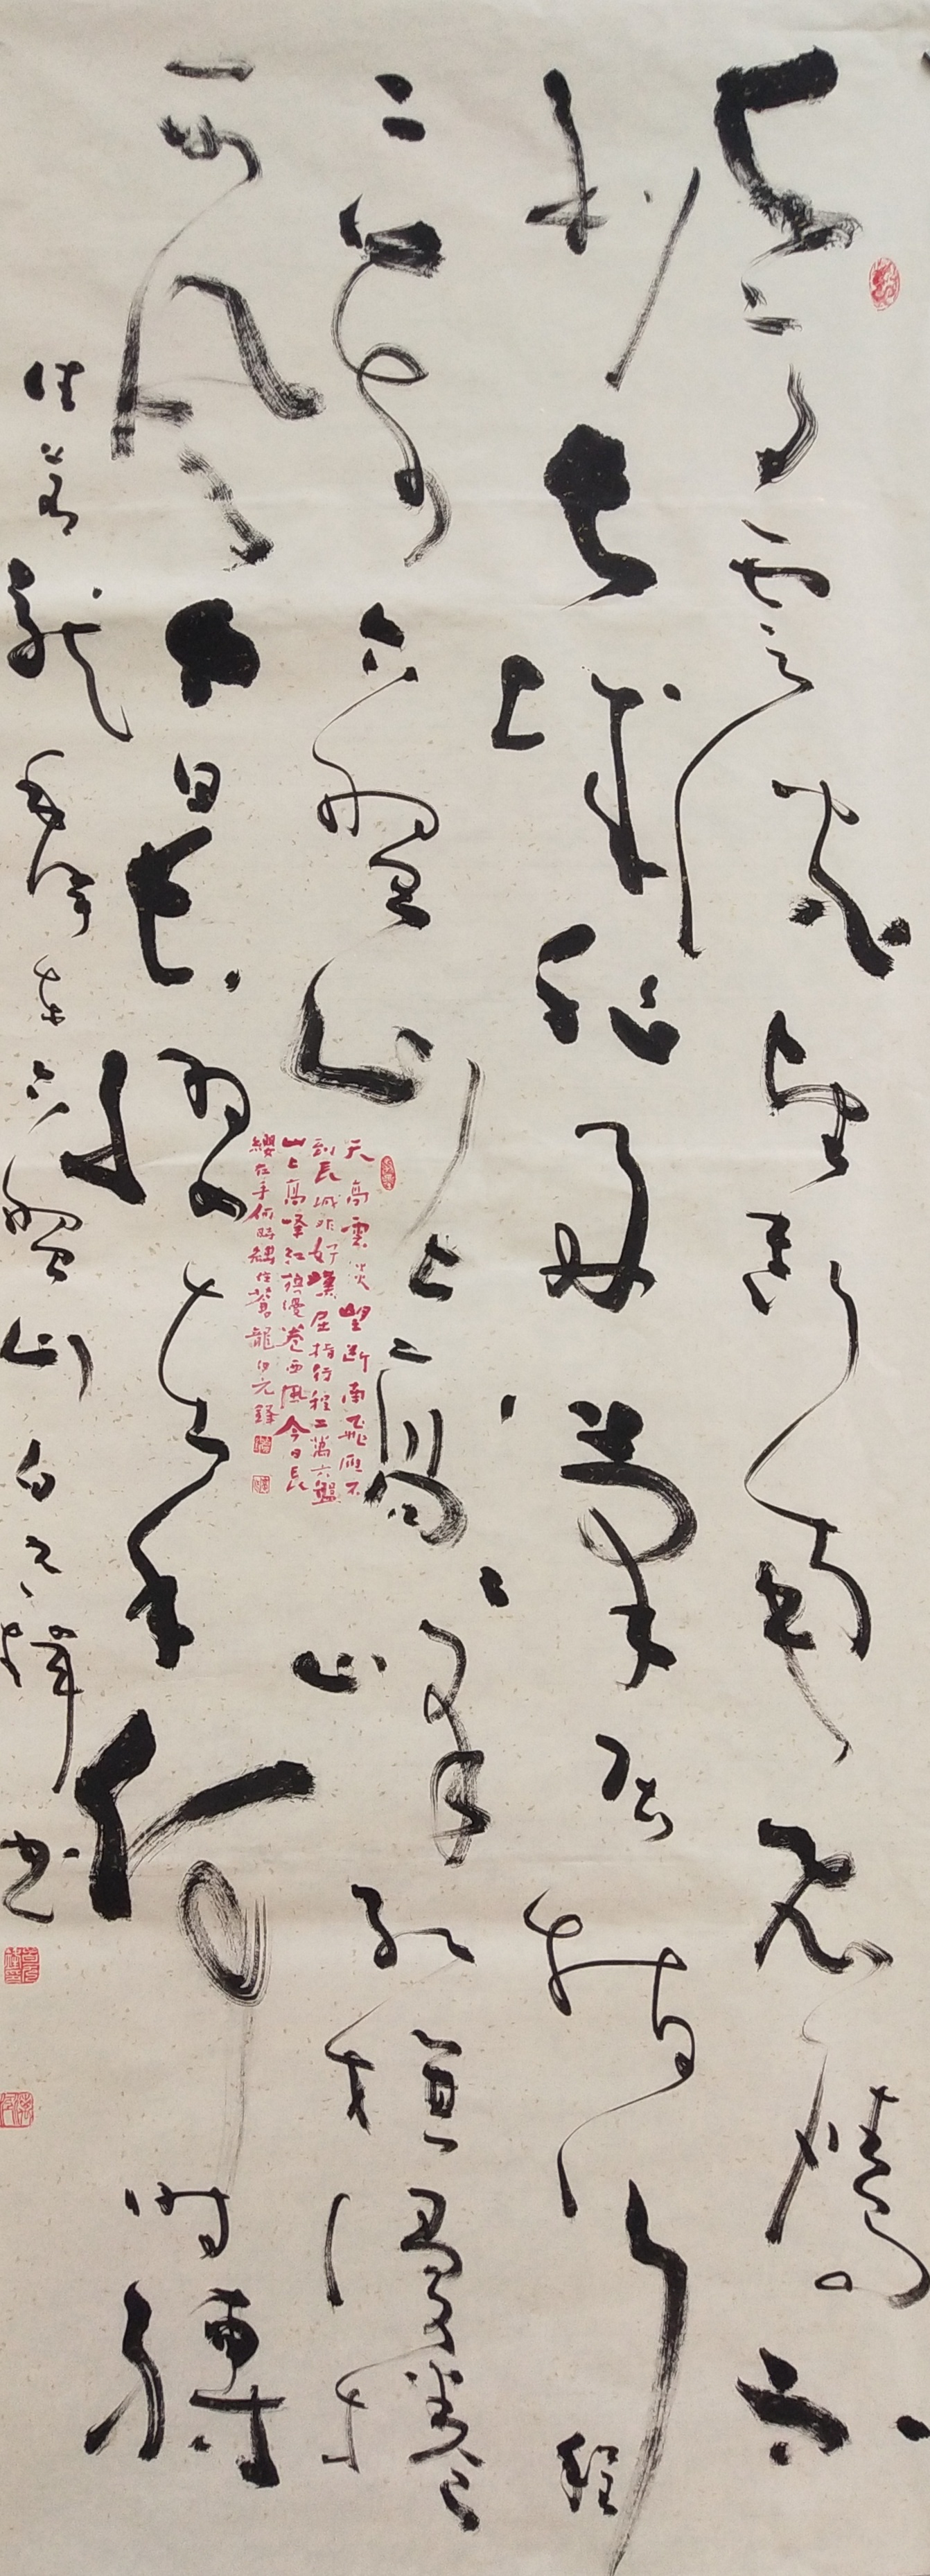 天高雲淡望断南飛雁不
到長城非好漢屈指行程
二萬六盤山上高峰紅旗漫捲
西風今日長纓在手何時縛
住蒼龍毛澤東六盤山白元鋒書
天高雲淡望断南飛雁不
到長城非好漢屈指行程二萬六盤
山上高峰紅旗漫卷西風今日長
纓在手何時縛住蒼龍白元鋒